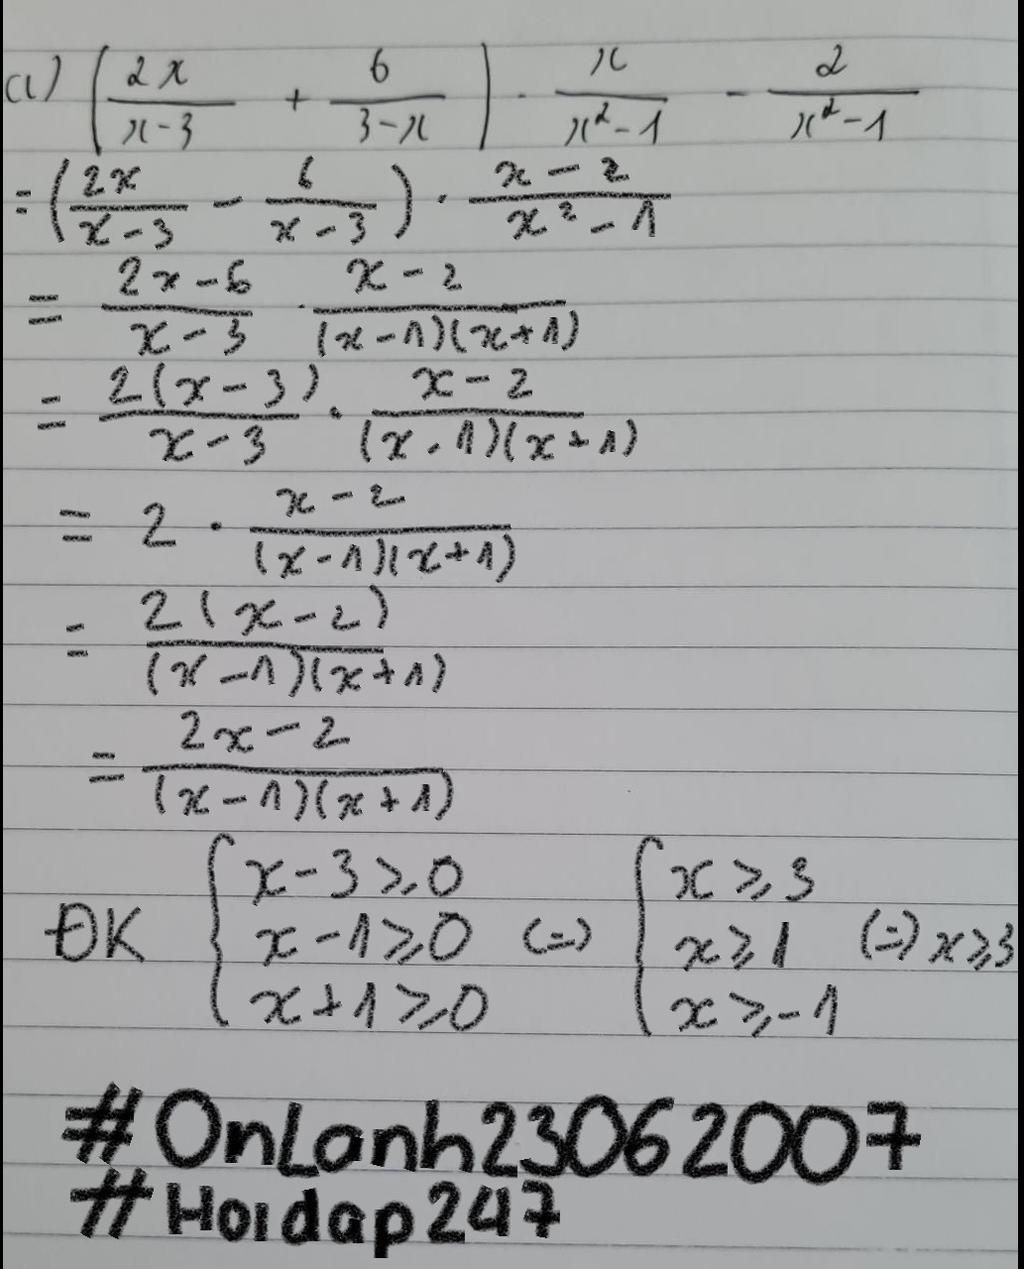 a) (2x/(x-3) + 6/(3-x)) · x/(x²-1) - 2/(x²-1)
= (2x/(x-3) - 6/(x-3)) · (x-2)/(x²-1)
= (2x-6)/(x-3) · (x-2)/((x-1)(x+1))
= 2(x-3)/(x-3) · (x-2)/((x-1)(x+1))
= 2 · (x-2)/((x-1)(x+1))
= 2(x-2)/((x-1)(x+1))
= (2x-2)/((x-1)(x+1))
ĐK { x-3⩾0 { x⩾3
x-1⩾0 (=) x⩾1 (=) x⩾3
x+1⩾0 x⩾-1
#OnLanh23062007
#Hoidap247